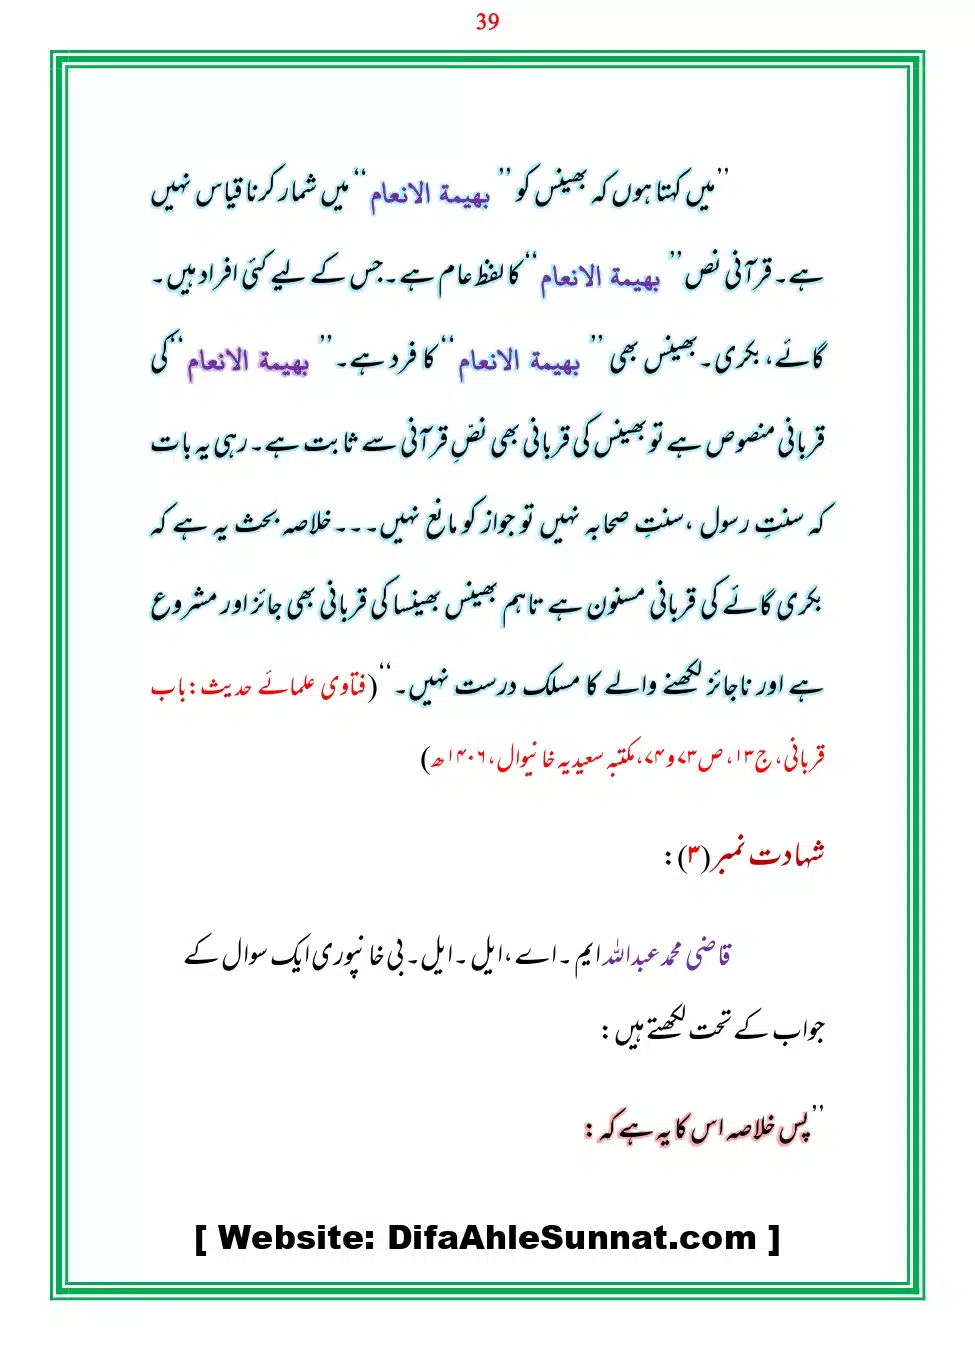 39
’’میں کہتا ہوں کہ بھینس کو ’’ بهيمة الانعام ‘‘ میں شمار کرنا قیاس نہیں
ہے۔قرآنی نص ’’ بهيمة الانعام ‘‘ کا لفظ عام ہے۔جس کے لیے کئی افراد ہیں۔
گائے، بکری۔بھینس بھی ’’ بهيمة الانعام ‘‘ کا فرد ہے۔’’ بهيمة الانعام ‘‘ کی
قربانی منصوص ہے تو بھینس کی قربانی بھی نصِّ قرآنی سے ثابت ہے۔رہی یہ بات
کہ سنتِ رسول ،سنتِ صحابہ نہیں تو جواز کو مانع نہیں۔۔۔خلاصہ بحث یہ ہے کہ
بکری گائے کی قربانی مسنون ہے تاہم بھینس بھینسا کی قربانی بھی جائز اور مشروع
ہے اور ناجائز لکھنے والے کا مسلک درست نہیں۔‘‘(فتاوی علمائے حدیث:باب
قربانی،ج۱۳،ص۷۳و۷۴،مکتبہ سعیدیہ خانیوال،۱۴۰۶ھ)
شہادت نمبر(۳):
قاضی محمد عبداللہ ایم ۔اے،ایل ۔ایل۔بی خانپوری ایک سوال کے
جواب کے تحت لکھتے ہیں:
’’پس خلاصہ اس کا یہ ہے کہ:
[ Website: DifaAhleSunnat.com ]